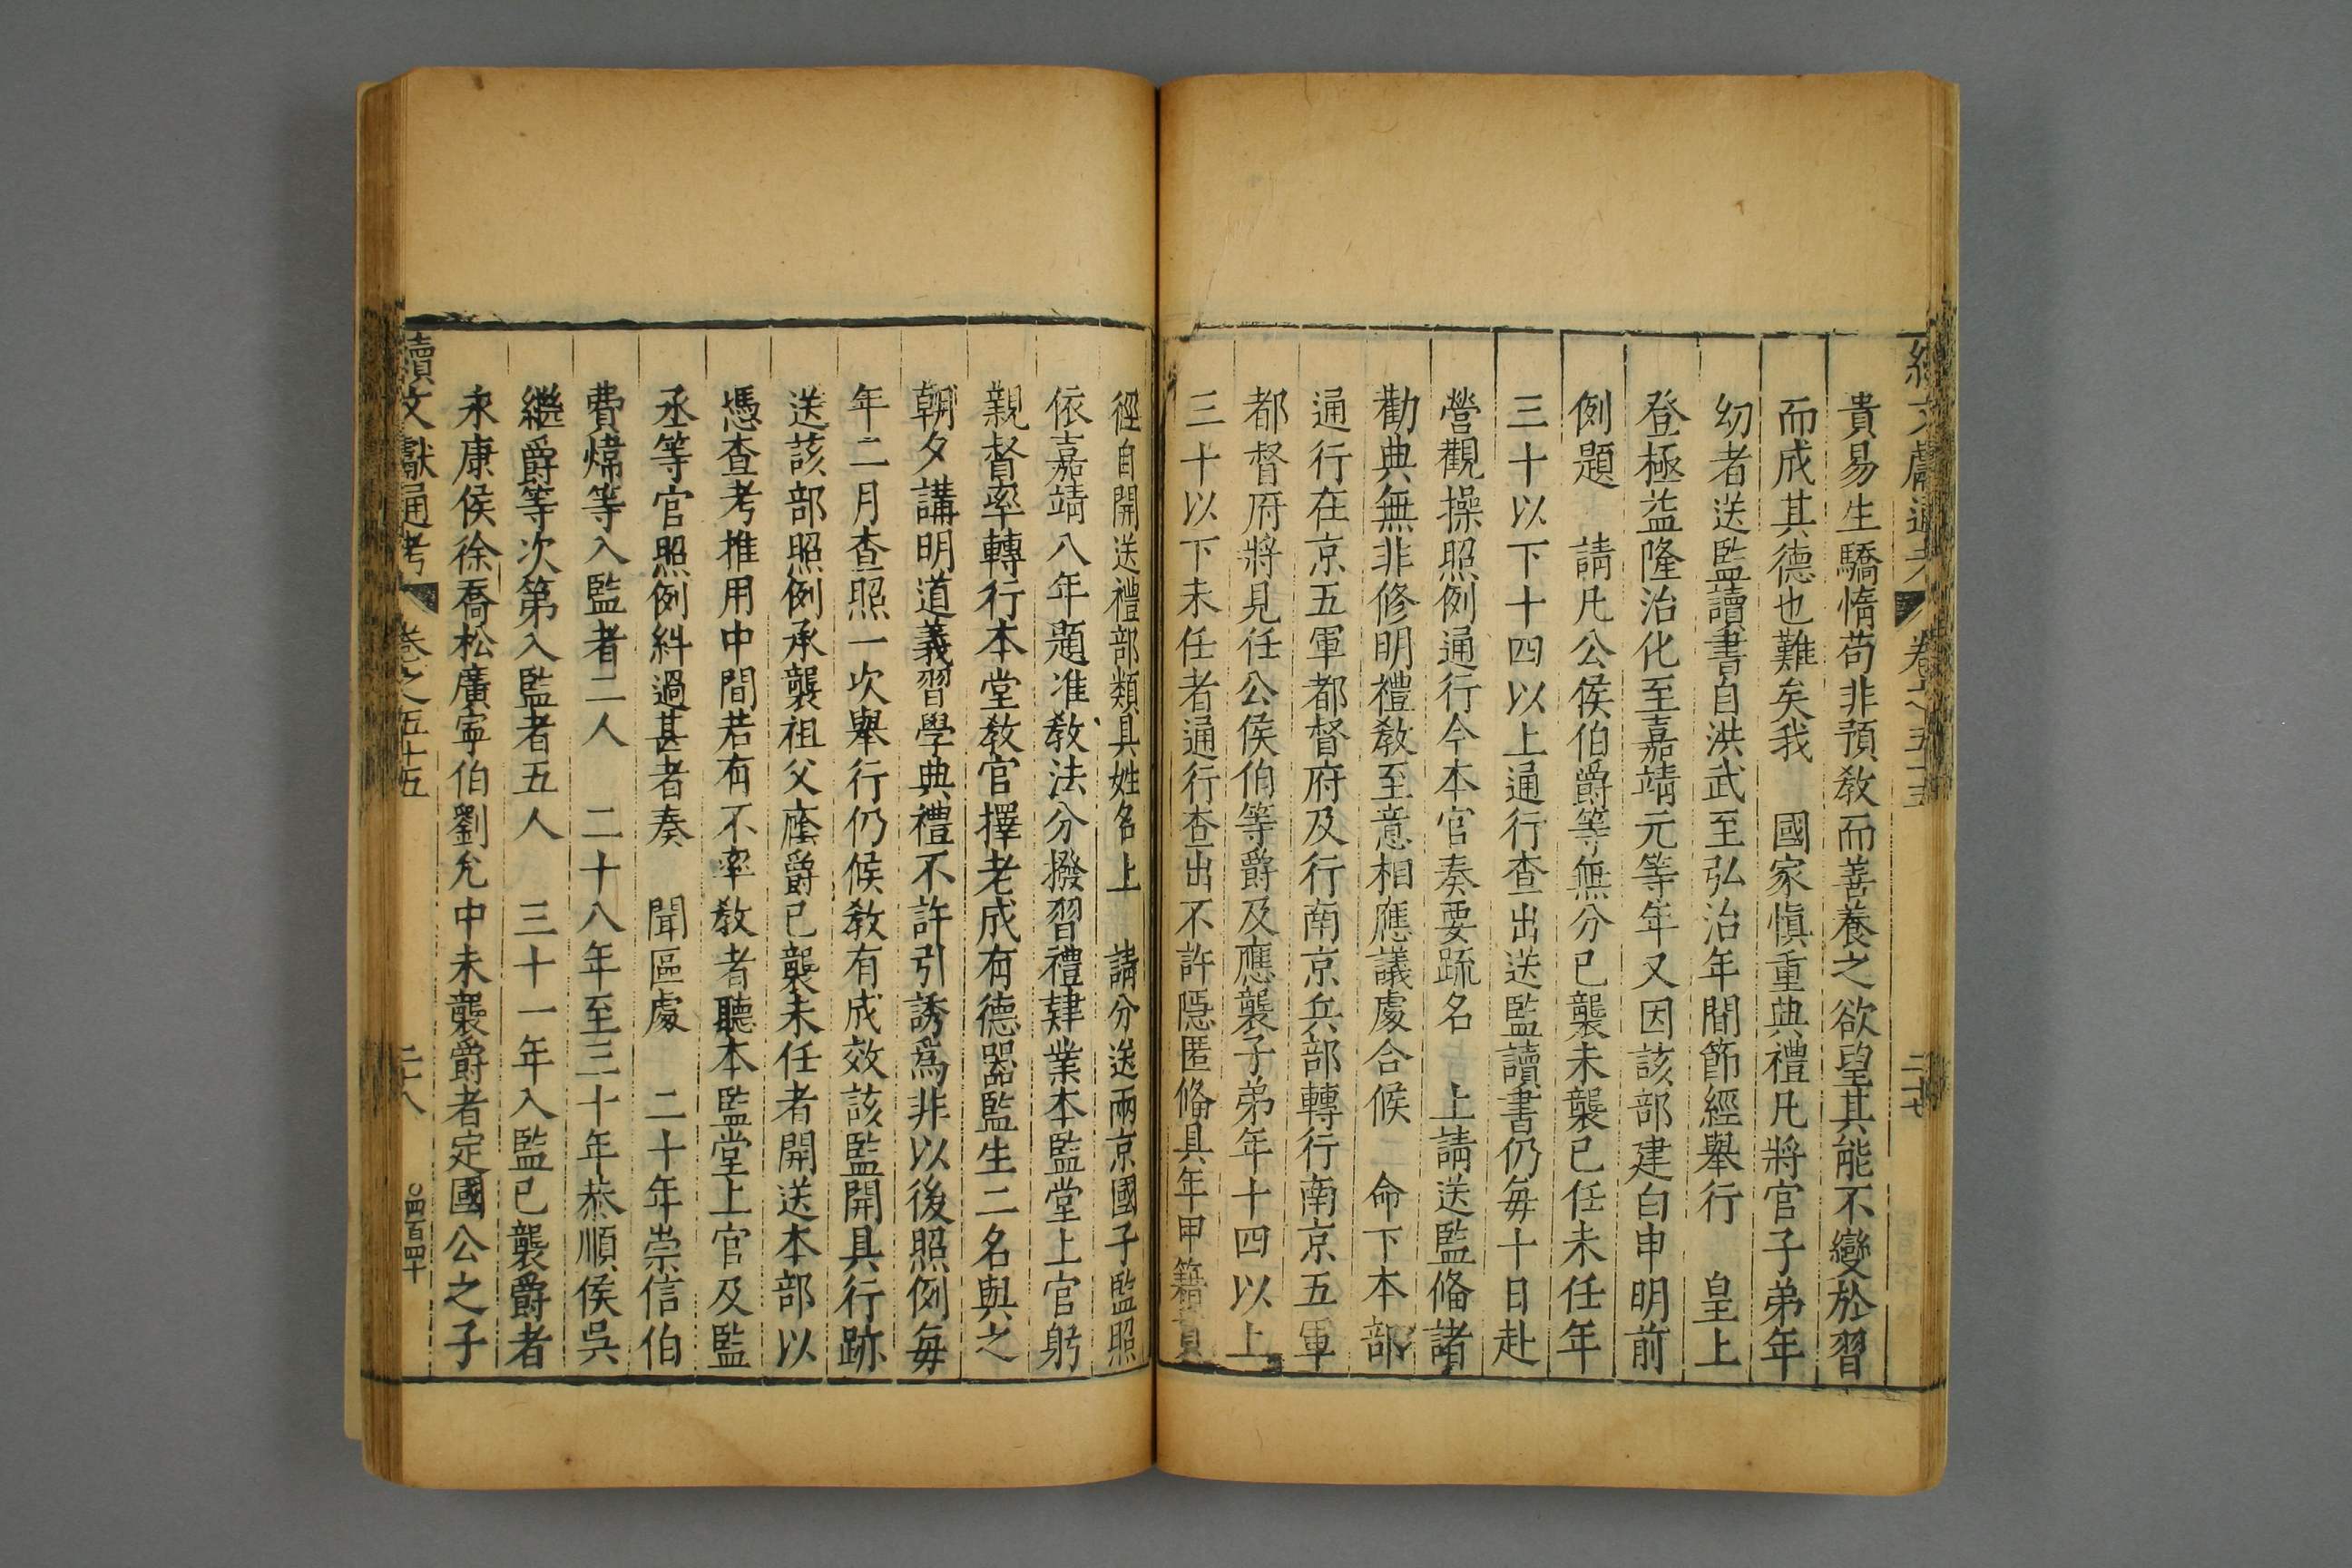 續文獻通考 卷之五十五 二十七
貴易生驕惰苟非預教而善養之欲望其能不變於習
而成其德也難矣我 國家慎重典禮凡將官子弟年
幼者送監讀書自洪武至弘治年間節經舉行 皇上
登極益隆治化至嘉靖元等年又因該部建白申明前
例題 請凡公侯伯爵等無分已襲未襲已任未任年
三十以下十四以上通行查出送監讀書仍每十日赴
營觀操照例通行今本官奏要疏名 上請送監俻諸
勸典無非修明禮教至意相應議處合候 命下本部
通行在京五軍都督府及行南京兵部轉行南京五軍
都督府將見任公侯伯等爵及應襲子弟年十四以上
三十以下未任者通行查出不許隠匿俻具年甲籍貫
徑自開送禮部類具姓名上 請分送兩京國子監照
依嘉靖八年題准教法分撥習禮肄業本監堂上官躬
親督率轉行本堂教官擇老成有德器監生二名與之
朝夕講明道義習學典禮不許引誘爲非以後照例每
年二月查照一次舉行仍候教有成效該監開具行跡
送該部照例承襲祖父廕爵已襲未任者開送本部以
憑查考推用中間若有不率教者聽本監堂上官及監
丞等官照例糾過甚者奏 聞區處 二十年崇信伯
費煒等入監者二人 二十八年至三十年恭順侯吳
繼爵等次第入監者五人 三十一年入監已襲爵者
永康侯徐喬松廣寧伯劉允中未襲爵者定國公之子
續文獻通考 卷之五十五 二十八 〇四百四十